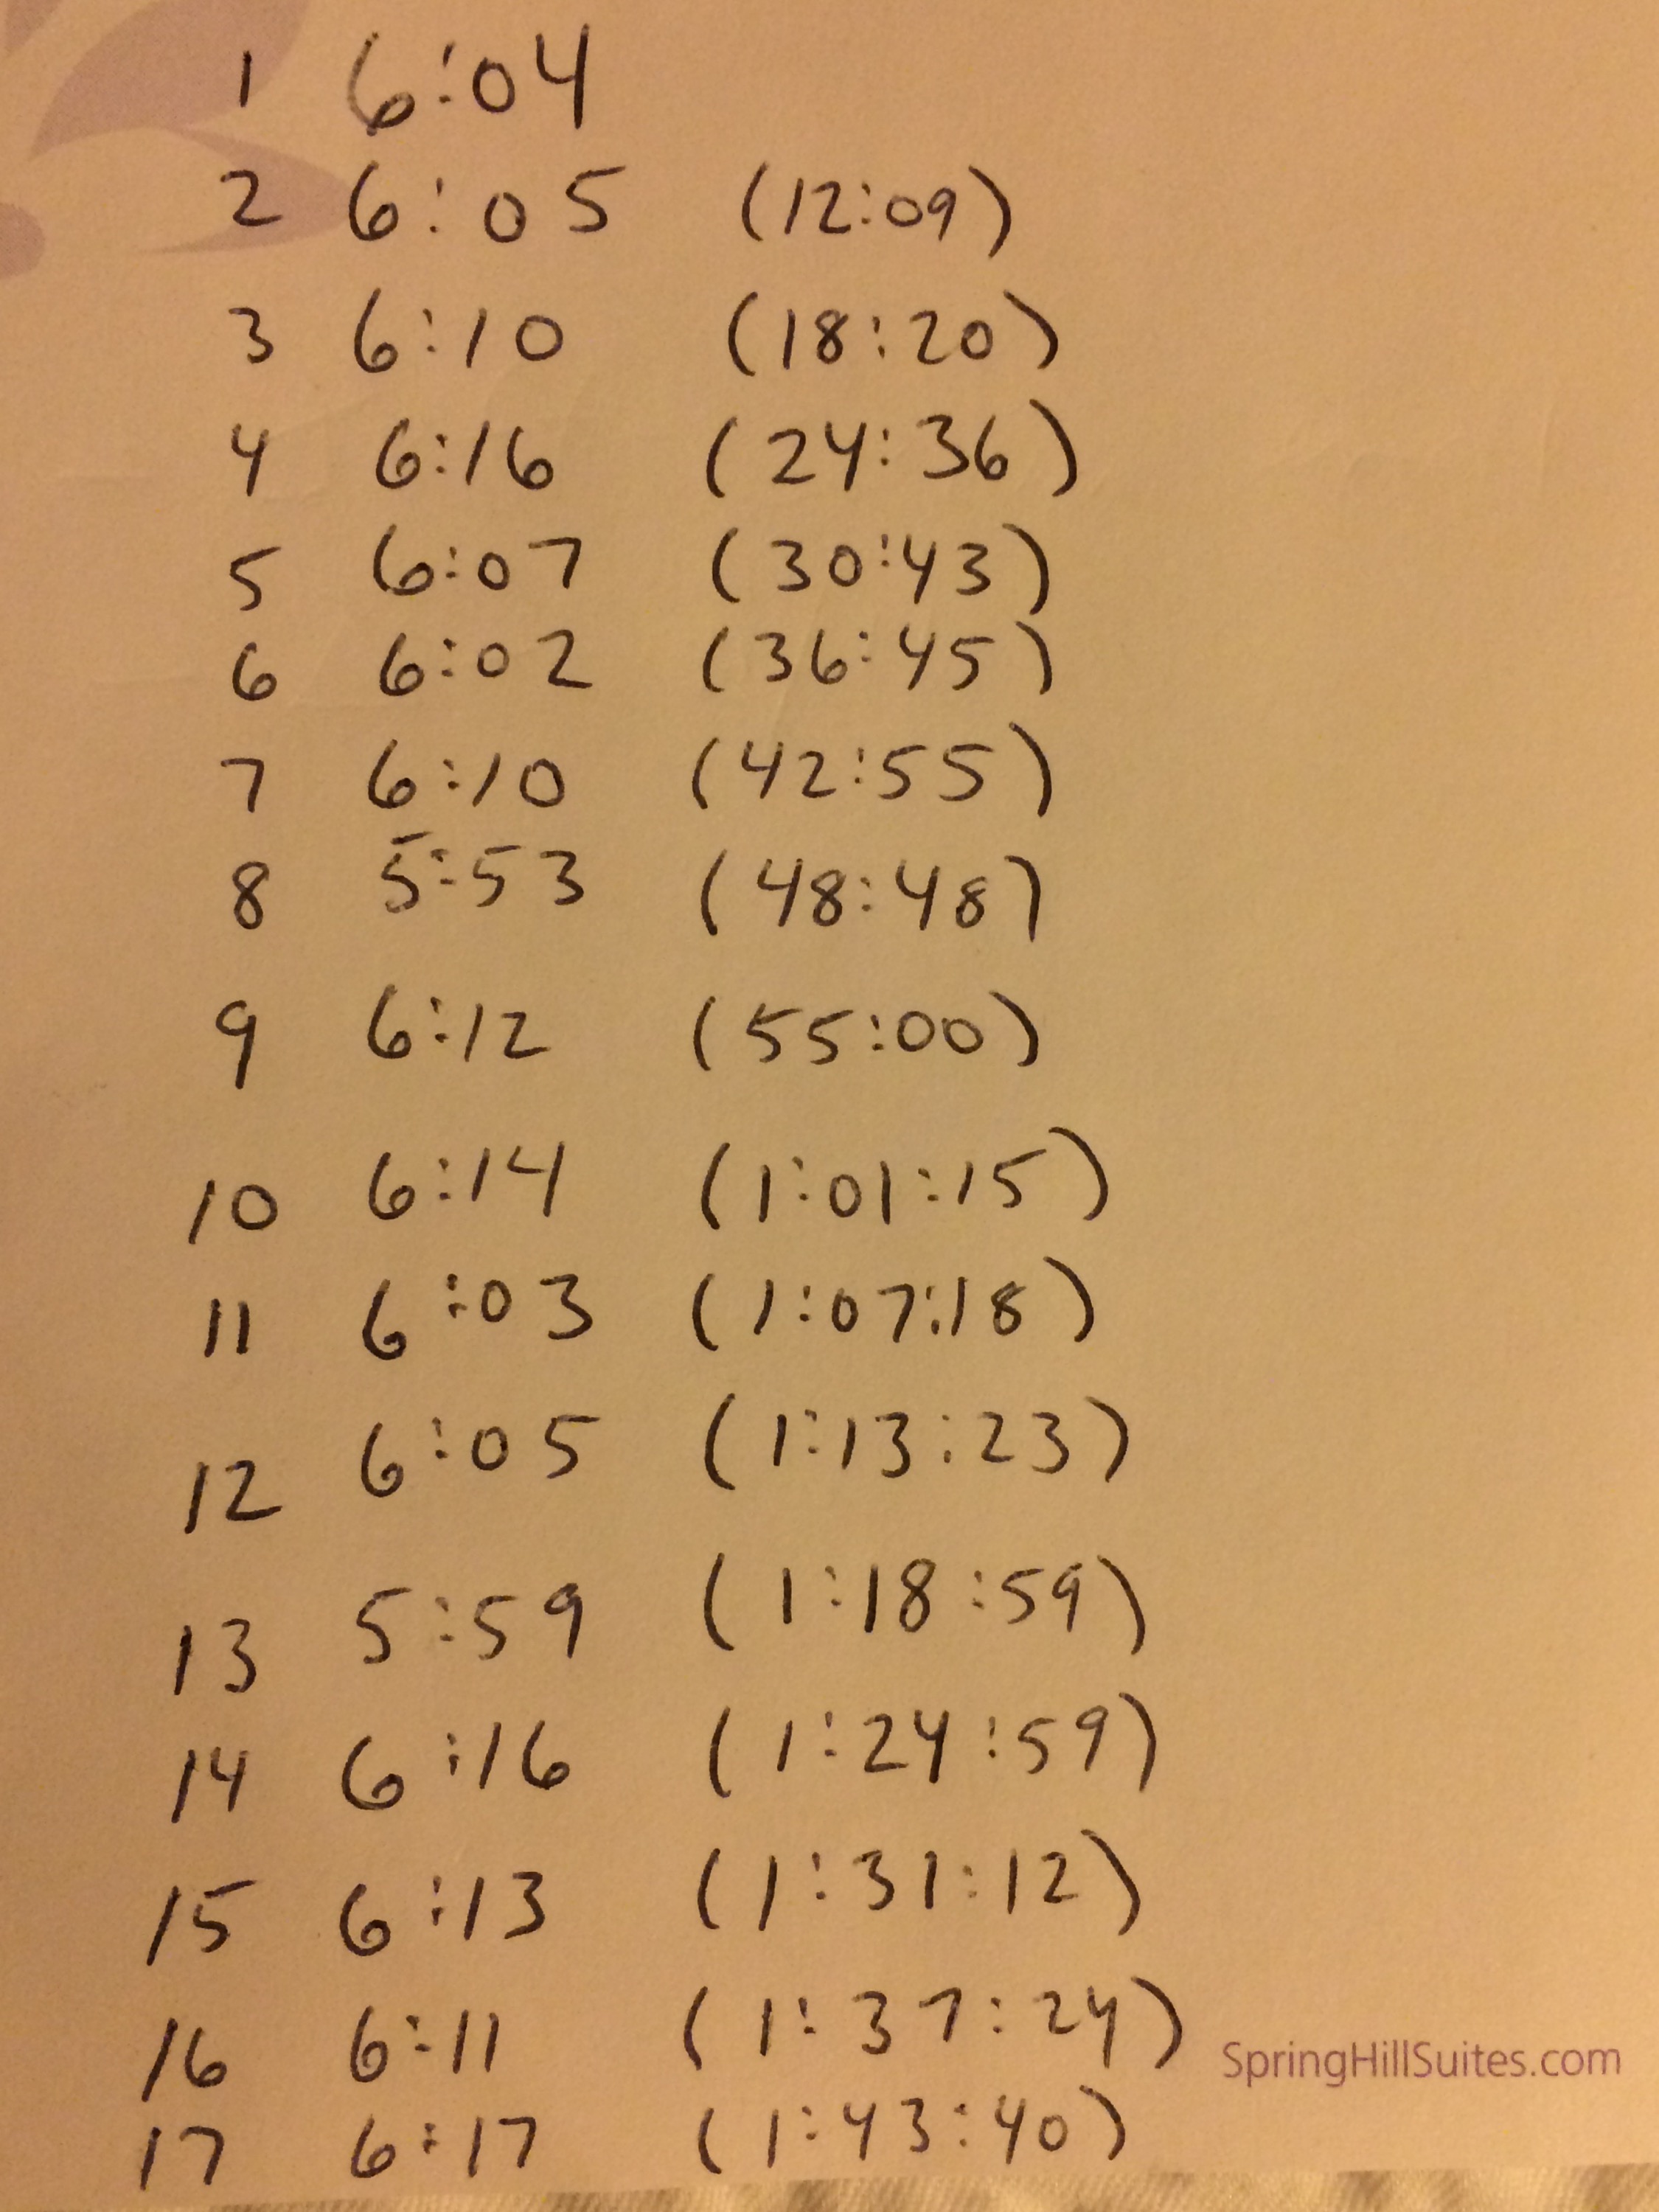 1 6:04
2 6:05 (12:09)
3 6:10 (18:20)
4 6:16 (24:36)
5 6:07 (30:43)
6 6:02 (36:45)
7 6:10 (42:55)
8 5:53 (48:48)
9 6:12 (55:00)
10 6:14 (1:01:15)
11 6:03 (1:07:18)
12 6:05 (1:13:23)
13 5:59 (1:18:59)
14 6:16 (1:24:59)
15 6:13 (1:31:12)
16 6:11 (1:37:24)
SpringHillSuites.com
17 6:17 (1:43:40)